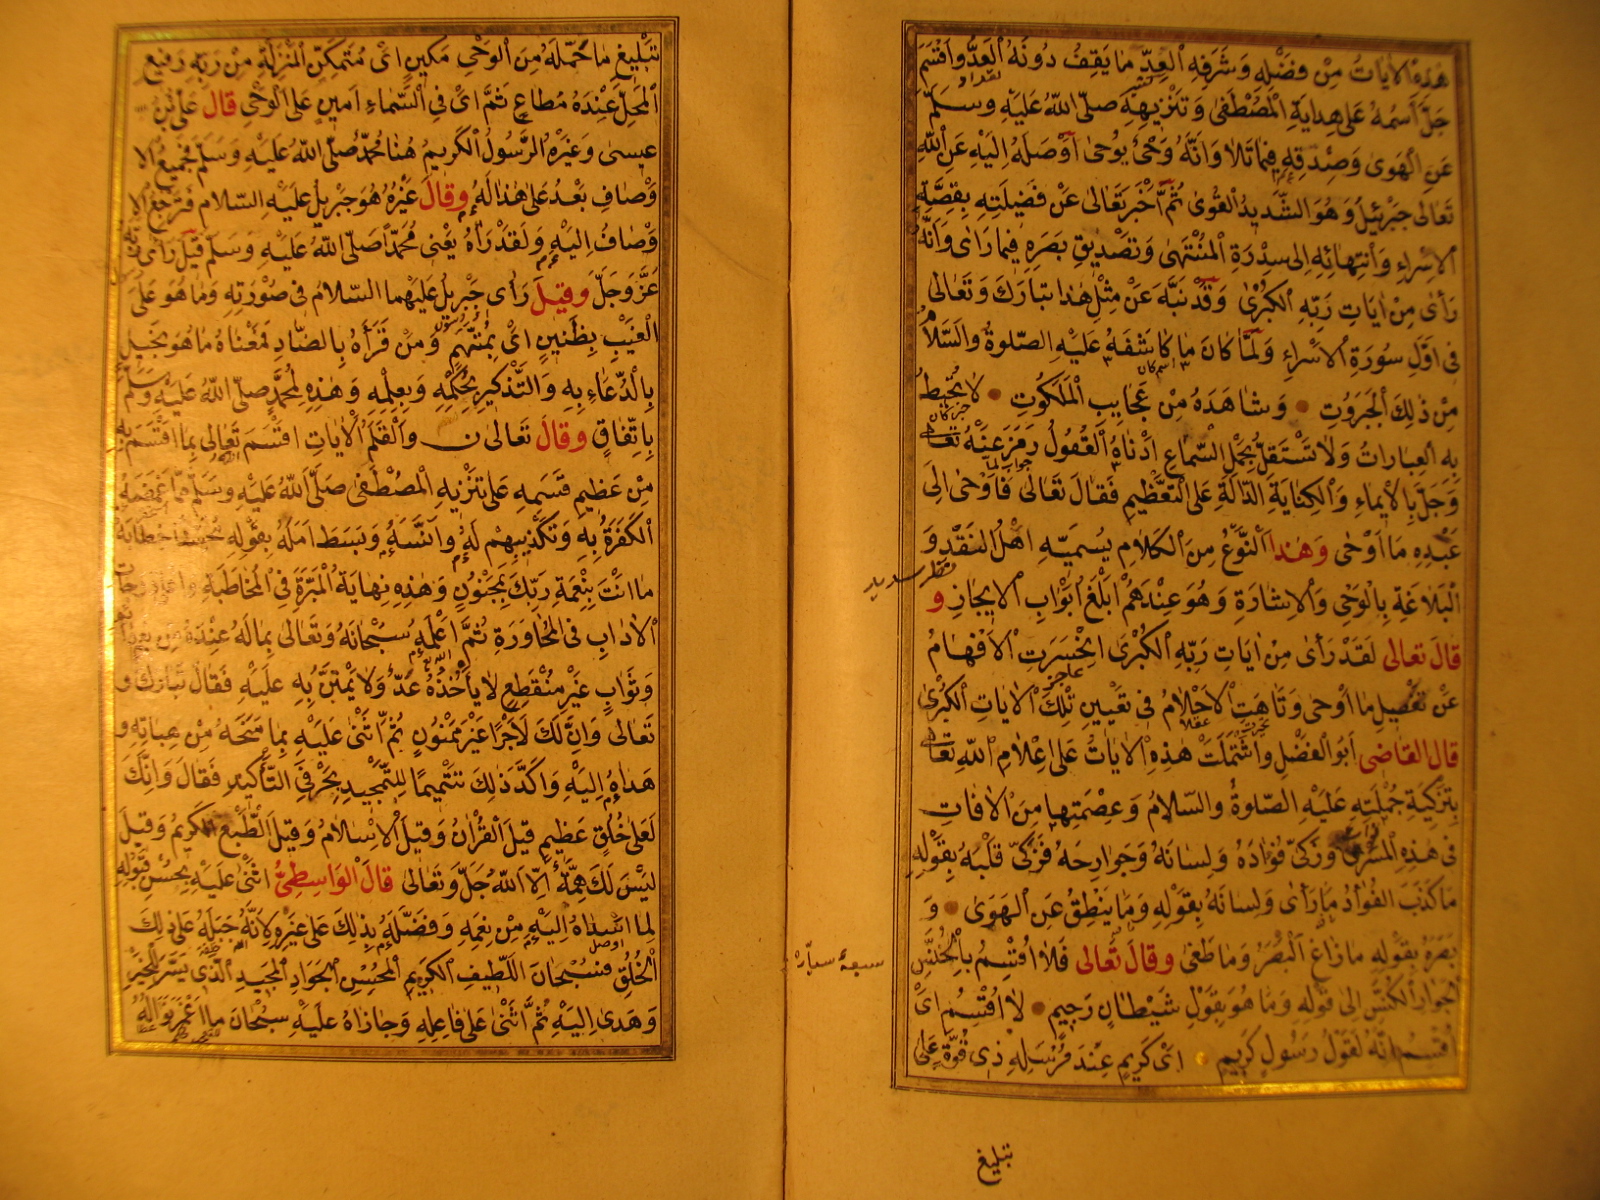 هذه الآيات من فضله وشرفه العدّ ما يقف دونه العدّ واقسم
جلّ اسمه على هداية المصطفى وتنزيهه صلّى الله عليه وسلّم
عن الهوى وصدقه فيما تلا وانّه وحى يوحى اوصله اليه عن الله
تعالى جبرئيل وهو الشّديد القوى ثمّ اخبر تعالى عن فضيلته بقصّة
الاسراء وانتهائه الى سدرة المنتهى وتصديق بصره فيما رأى وانّه
رأى من ايات ربّه الكبرى وقد نبّه عن مثل هذا تبارك وتعالى
فى اوّل سورة الاسراء ولمّا كان ما كاشفه عليه الصّلوة والسّلام
من ذلك الجبروت وشاهده من عجايب الملكوت لا تحيط
به العبارات ولا تستقلّ بحمل السّماع ادناه العقول رمز عنه تعالى
وجلّ بالايماء والكناية الدّالة على التّعظيم فقال تعالى فاوحى الى
عبده ما اوحى وهذا النّوع من الكلام يسميّه اهل النّقد و
البلاغة بالوحى والاشارة وهو عندهم ابلغ ابواب الايجاز و
قال تعالى لقد رأى من ايات ربّه الكبرى انحسرت الافهام
عن تفصيل ما اوحى وتاهت الاحلام فى تعيين تلك الايات الكبرى
قال القاضى ابو الفضل واشتملت هذه الايات على اعلام الله تعالى
بتزكية جملته عليه الصّلوة والسّلام وعصمتها من الافات
فى هذه المسرى وزكّى فؤاده ولسانه وجوارحه فزكّى قلبه بقوله
ما كذب الفؤاد ما رأى ولسانه بقوله وما ينطق عن الهوى و
بصره بقوله ما زاغ البصر وما طغى وقال تعالى فلا اقسم بالخنّس
الجوار الكنّس الى قوله وما هو بقول شيطان رجيم لا اقسم اى
اقسم انّه لقول رسول كريم اى كريم عند مرسله ذى قوّة على
سبعة سيّارة
تبليغ
تبليغ ما حمّله من الوحى مكين اى متمكّن المنزلة من ربّه رفيع
المحلّ عنده مطاع ثمّ اى فى السّماء امين على الوحى قال علىّ بن
عيسى وغيره الرّسول الكريم هنا محمّد صلّى الله عليه وسلّم فجميع الا
وصاف بعد على هذا له وقال غيره هو جبريل عليه السّلام فترجع الا
وصاف اليه ولقد رأه يعنى محمّدا صلّى الله عليه وسلّم قيل رأى ربّه
عزّ وجلّ وقيل رأى جبريل عليهما السّلام فى صورته وما هو على
الغيب بظنين اى بمتّهم ومن قرأه بالضّاد فمعناه ما هو ببخيل
بالدّعاء به والتّذكير بحكمه وبعلمه وهذه لمحمّد صلّى الله عليه وسلّم
باتّفاق وقال تعالى ن والقلم الايات اقسم تعالى بما اقسم به
من عظيم قسمه على تنزيه المصطفى صلّى الله عليه وسلّم ممّا غمصه
الكفرة به وتكذيبهم له وآنسه وبسط امله بقوله محسنا خطابه
ما انت بنعمة ربّك بمجنون وهذه نهاية المبرّة فى المخاطبة واعلى درجات
الاداب فى المحاورة ثمّ اعلمه سبحانه وتعالى بما له عنده من نعيم دائم
وثواب غير منقطع لا يأخذه عدّ ولا يمتنّ به عليه فقال تبارك و
تعالى وانّ لك لاجرا غير ممنون ثمّ اثنى عليه بما منحه من هباته و
هداه اليه واكّد ذلك تتميما للتّمجيد بحرفى التّأكيد فقال وانّك
لعلى خلق عظيم قيل القران وقيل الاسلام وقيل الطّبع الكريم وقيل
ليس لك همّة الّا الله جلّ وتعالى قال الواسطىّ اثنى عليه بحسن قبوله
لما اسداه اليه من نعمه وفضّله بذلك على غيره لانّه جبله على ذلك
الخلق فسبحان اللّطيف الكريم المحسن الجواد المجيد الّذى يسّر للخير
وهدى اليه ثمّ اثنى على فاعله وجازاه عليه سبحان ما اغزر نواله